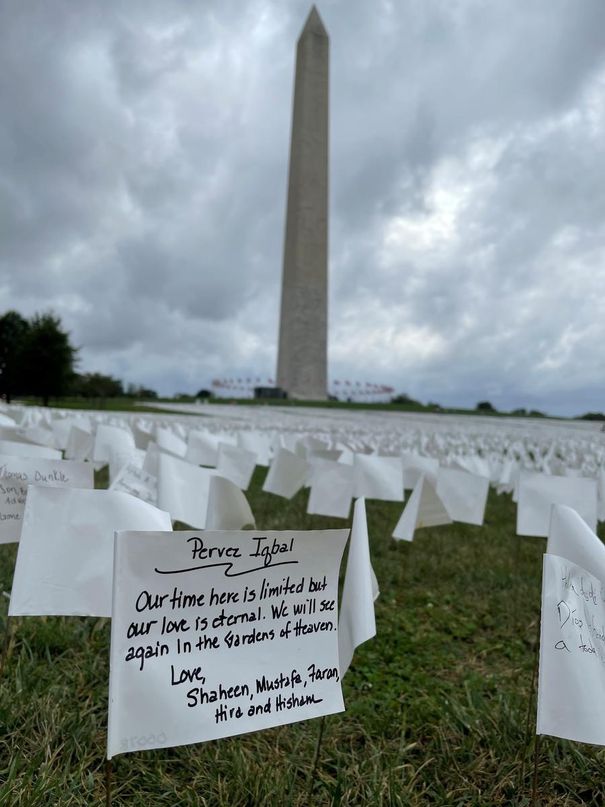 Pervez Iqbal
Our time here is limited but
our love is eternal. We will see
again In the Gardens of Heaven.
Love,
Shaheen, Mustafa, Faran,
Hira and Hisham
Thomas Dunkle
Son,